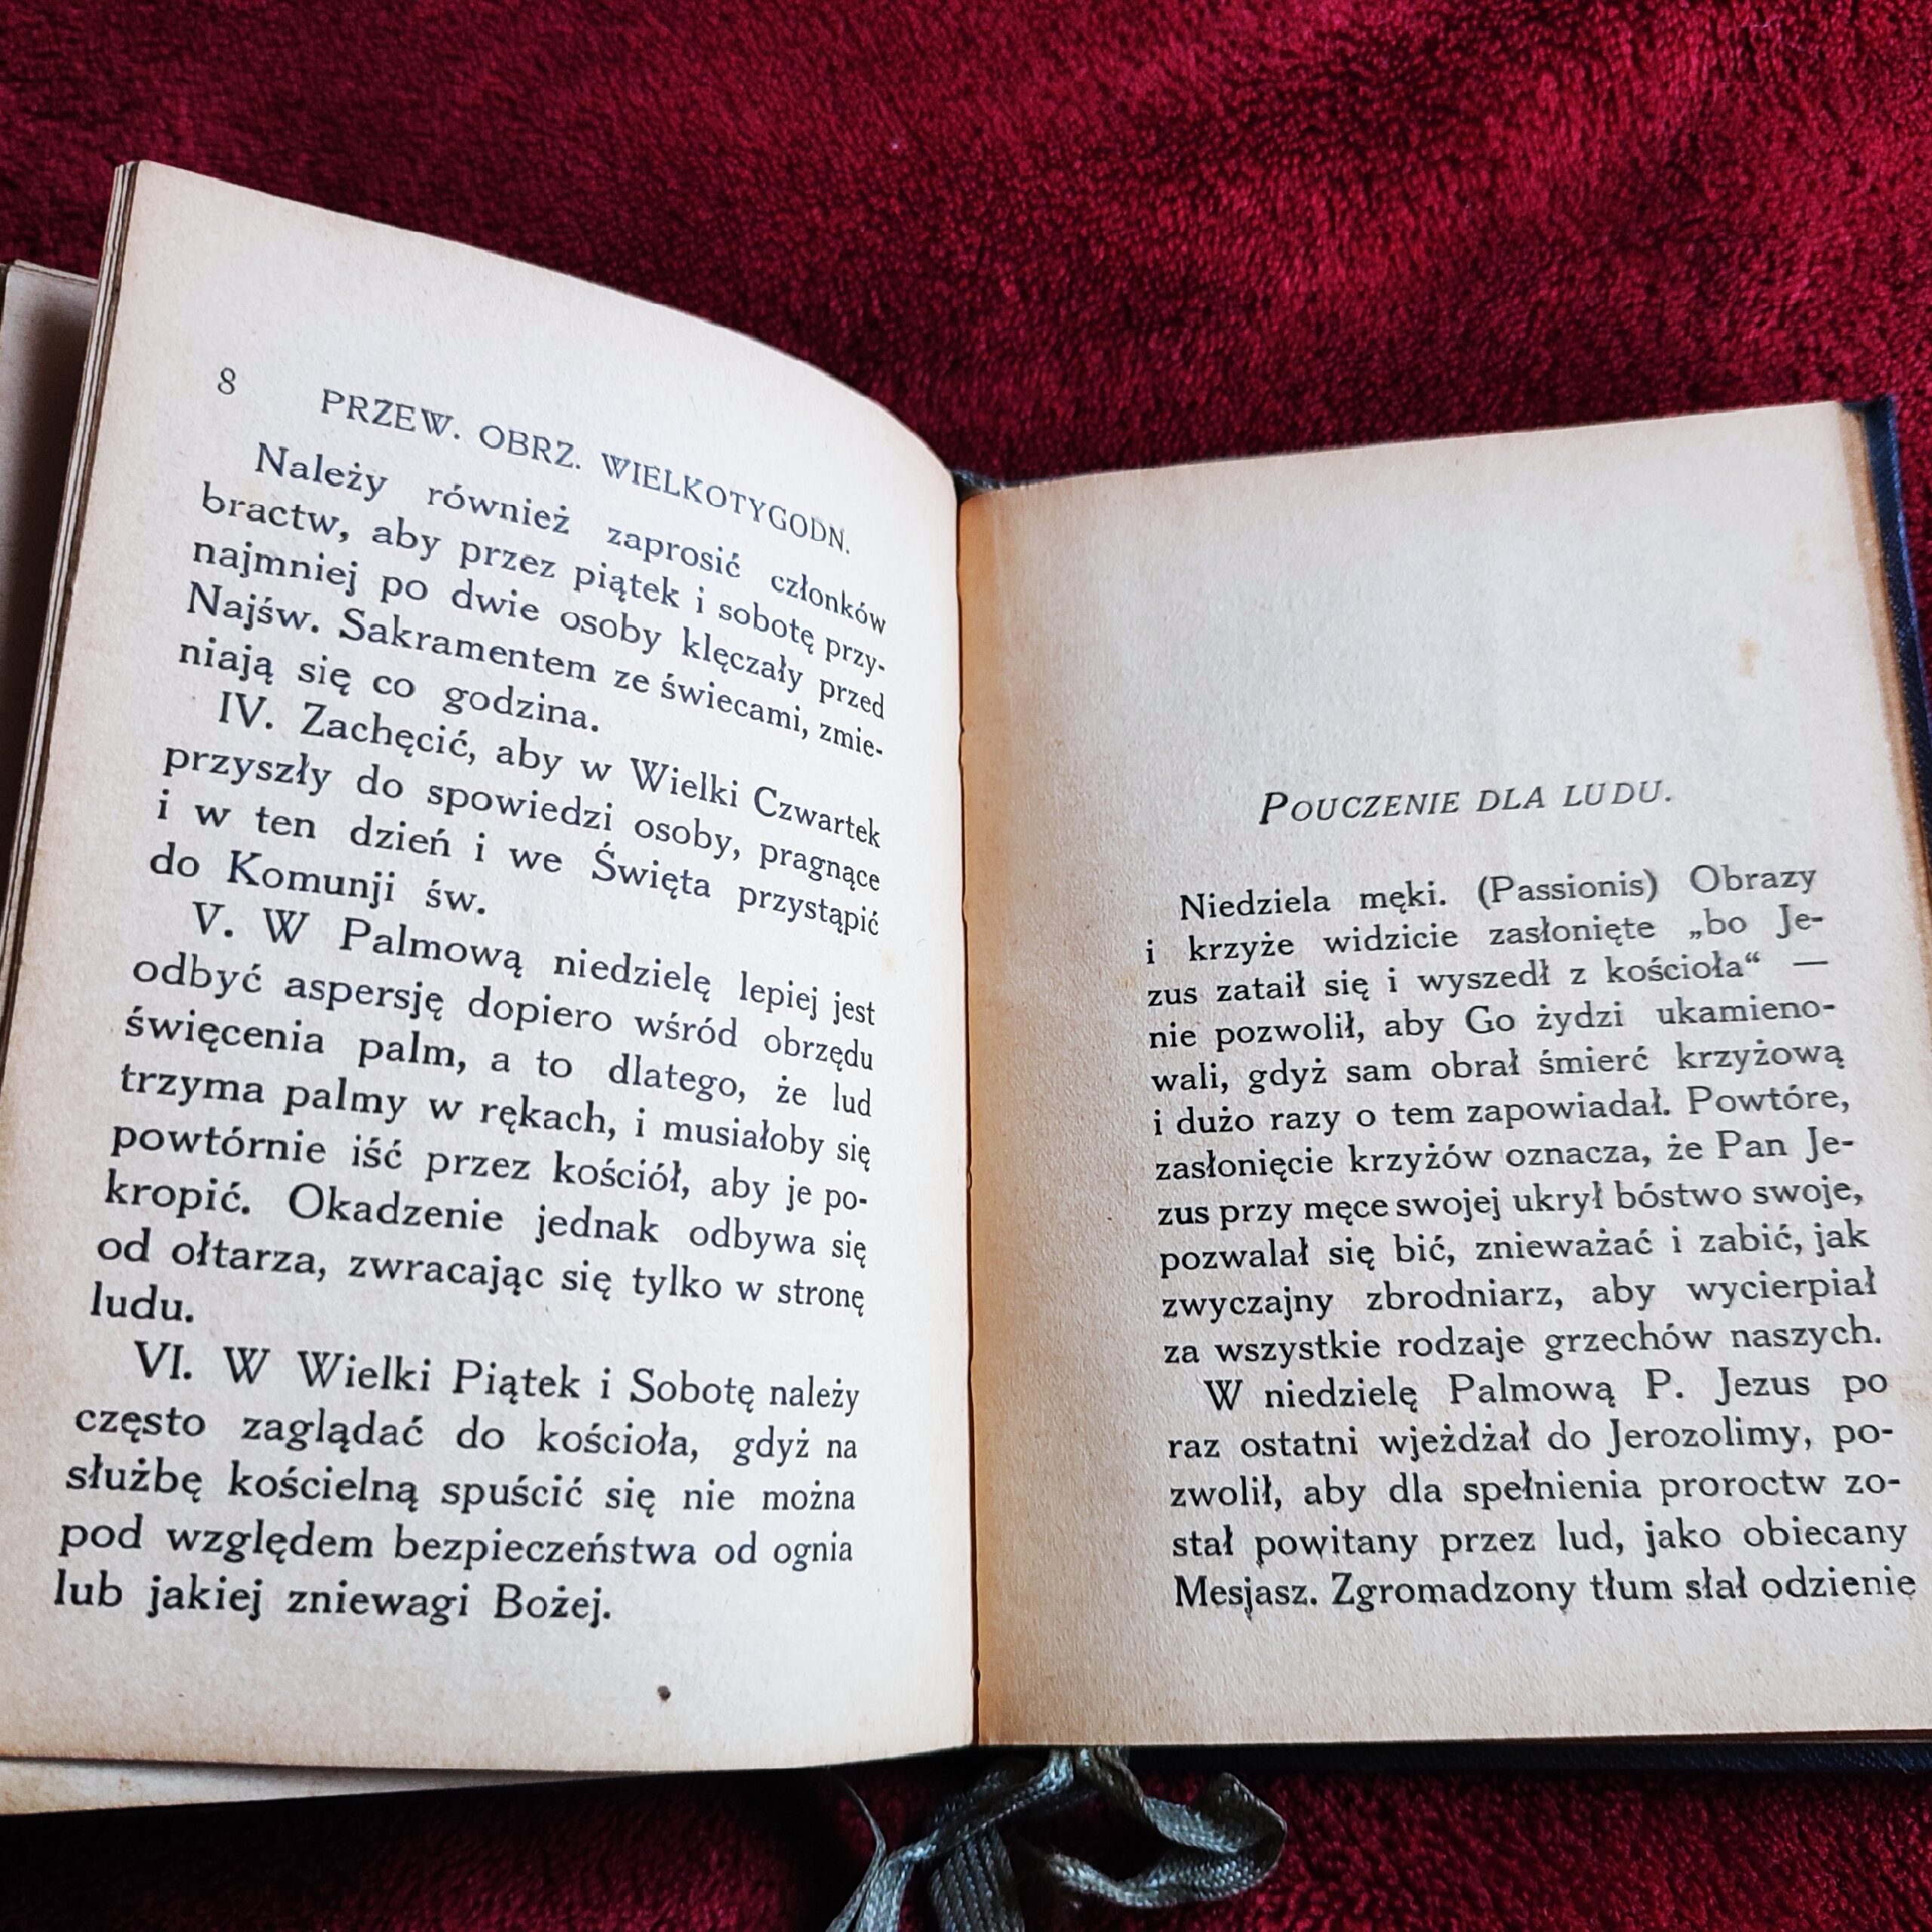 8 PRZEW. OBRZ. WIELKOTYGODN.
Należy również zaprosić członków
bractw, aby przez piątek i sobotę przy-
najmniej po dwie osoby klęczały przed
Najśw. Sakramentem ze świecami, zmie-
niają się co godzina.
IV. Zachęcić, aby w Wielki Czwartek
przyszły do spowiedzi osoby, pragnące
i w ten dzień i we Święta przystąpić
do Komunji św.
V. W Palmową niedzielę lepiej jest
odbyć aspersję dopiero wśród obrzędu
święcenia palm, a to dlatego, że lud
trzyma palmy w rękach, i musiałoby się
powtórnie iść przez kościół, aby je po-
kropić. Okadzenie jednak odbywa się
od ołtarza, zwracając się tylko w stronę
ludu.
VI. W Wielki Piątek i Sobotę należy
często zaglądać do kościoła, gdyż na
służbę kościelną spuścić się nie można
pod względem bezpieczeństwa od ognia
lub jakiej zniewagi Bożej.
POUCZENIE DLA LUDU.
Niedziela męki. (Passionis) Obrazy
i krzyże widzicie zasłonięte „bo Je-
zus zataił się i wyszedł z kościoła“ —
nie pozwolił, aby Go żydzi ukamieno-
wali, gdyż sam obrał śmierć krzyżową
i dużo razy o tem zapowiadał. Powtóre,
zasłonięcie krzyżów oznacza, że Pan Je-
zus przy męce swojej ukrył bóstwo swoje,
pozwalał się bić, znieważać i zabić, jak
zwyczajny zbrodniarz, aby wycierpiał
za wszystkie rodzaje grzechów naszych.
W niedzielę Palmową P. Jezus po
raz ostatni wjeżdżał do Jerozolimy, po-
zwolił, aby dla spełnienia proroctw zo-
stał powitany przez lud, jako obiecany
Mesjasz. Zgromadzony tłum słał odzienie